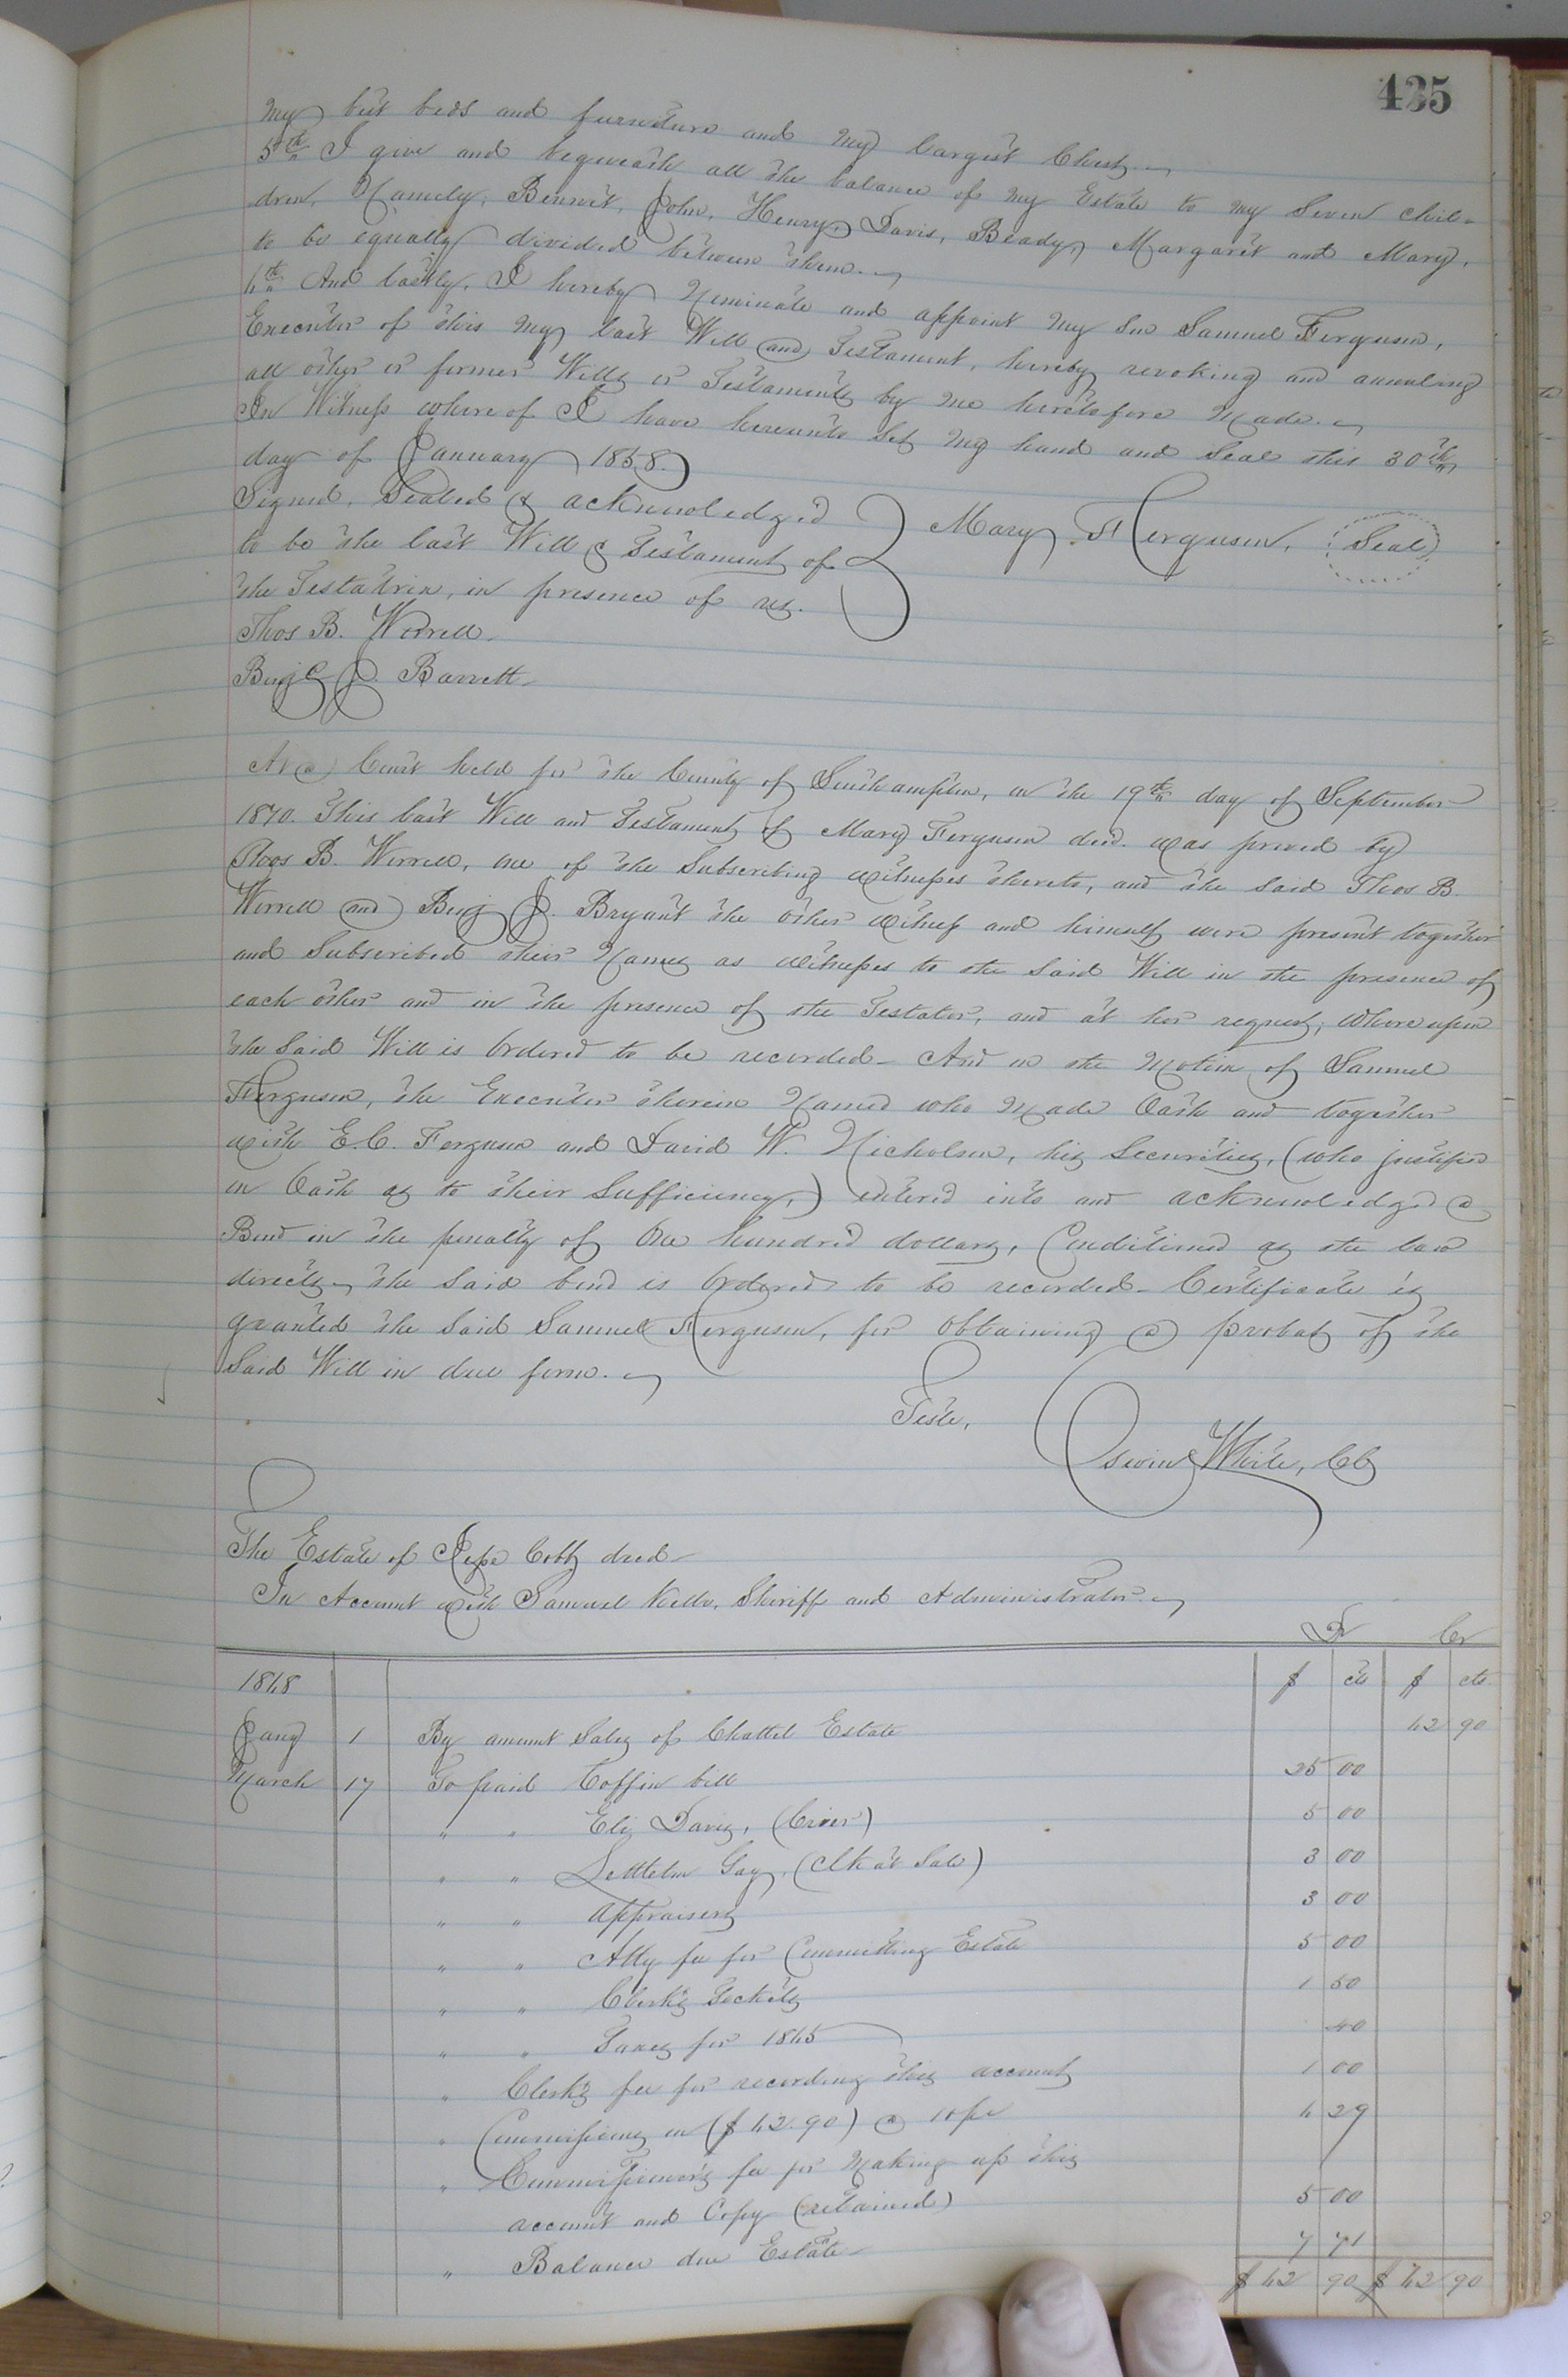 435
My best beds and furniture and my largest Chest.
5th I give and bequeath all the balance of my Estate to my Seven chil-
dren, Namely, Bennit, John, Henry, Davis, Beady, Margaret and Mary,
to be equally divided between them.
6th And lastly, I hereby Nominate and appoint my Son Samuel Ferguson,
Executor of this my last Will and Testament, hereby revoking and annuling
all other or former Wills or Testaments by me heretofore Made.
In Witness whereof I have hereunto Set my hand and Seal this 30th
day of January 1858.
Signed, Sealed & acknowledged
to be the last Will & Testament of
the Testatrix, in presence of us.
Mary Ferguson, (Seal)
Thos B. Worrell.
Benj J. Barrett.
At a Court held for the County of Southampton, on the 19th day of September
1870. This last Will and Testament of Mary Ferguson decd. was proved by
Thos B. Worrell, one of the Subscribing Witnesses thereto, and the said Thos B.
Worrell and Benj J. Bryant the other Witness and himself were present together
and Subscribed their Names as Witnesses to the Said Will in the presence of
each other and in the presence of the Testator, and at her request; Whereupon
the Said Will is Ordered to be recorded - And on the Motion of Samuel
Ferguson, the Executor therein Named who Made Oath and together
with E. C. Ferguson and David W. Nicholson, his Securities, (who justified
on Oath as to their Sufficiency,) entered into and acknowledged a
Bond in the penalty of One hundred dollars, Conditioned as the law
directs, the Said bond is Ordered to be recorded - Certificate is
granted the Said Samuel Ferguson, for Obtaining a probat of the
Said Will in due form.
Teste,
White, CC
The Estate of Jesse Cobb decd -
In Account with Samuel Kello, Sheriff and Administrator.
Dr Cr
1868 $ cts $ cts
Jany 1 By amount Sales of Chattel Estate 62 90
March 17 To paid Coffin bill 25 00
" " Eli Davis, (Crier) 5 00
" " Gay, (Clk at Sale) 3 00
" " Appraisers 3 00
" " Atty fee for Committing Estate 5 00
" " Clerk's Tickets 1 50
" " Taxes for 1865 40
" Clerk's fee for recording this account 1 00
" Commissions on ($62.90) @ 10 pc 6 29
" Commissioner's fee for Making up this
account and Copy (retained) 5 00
" Balance due Estate 7 71
$62 90 $62 90